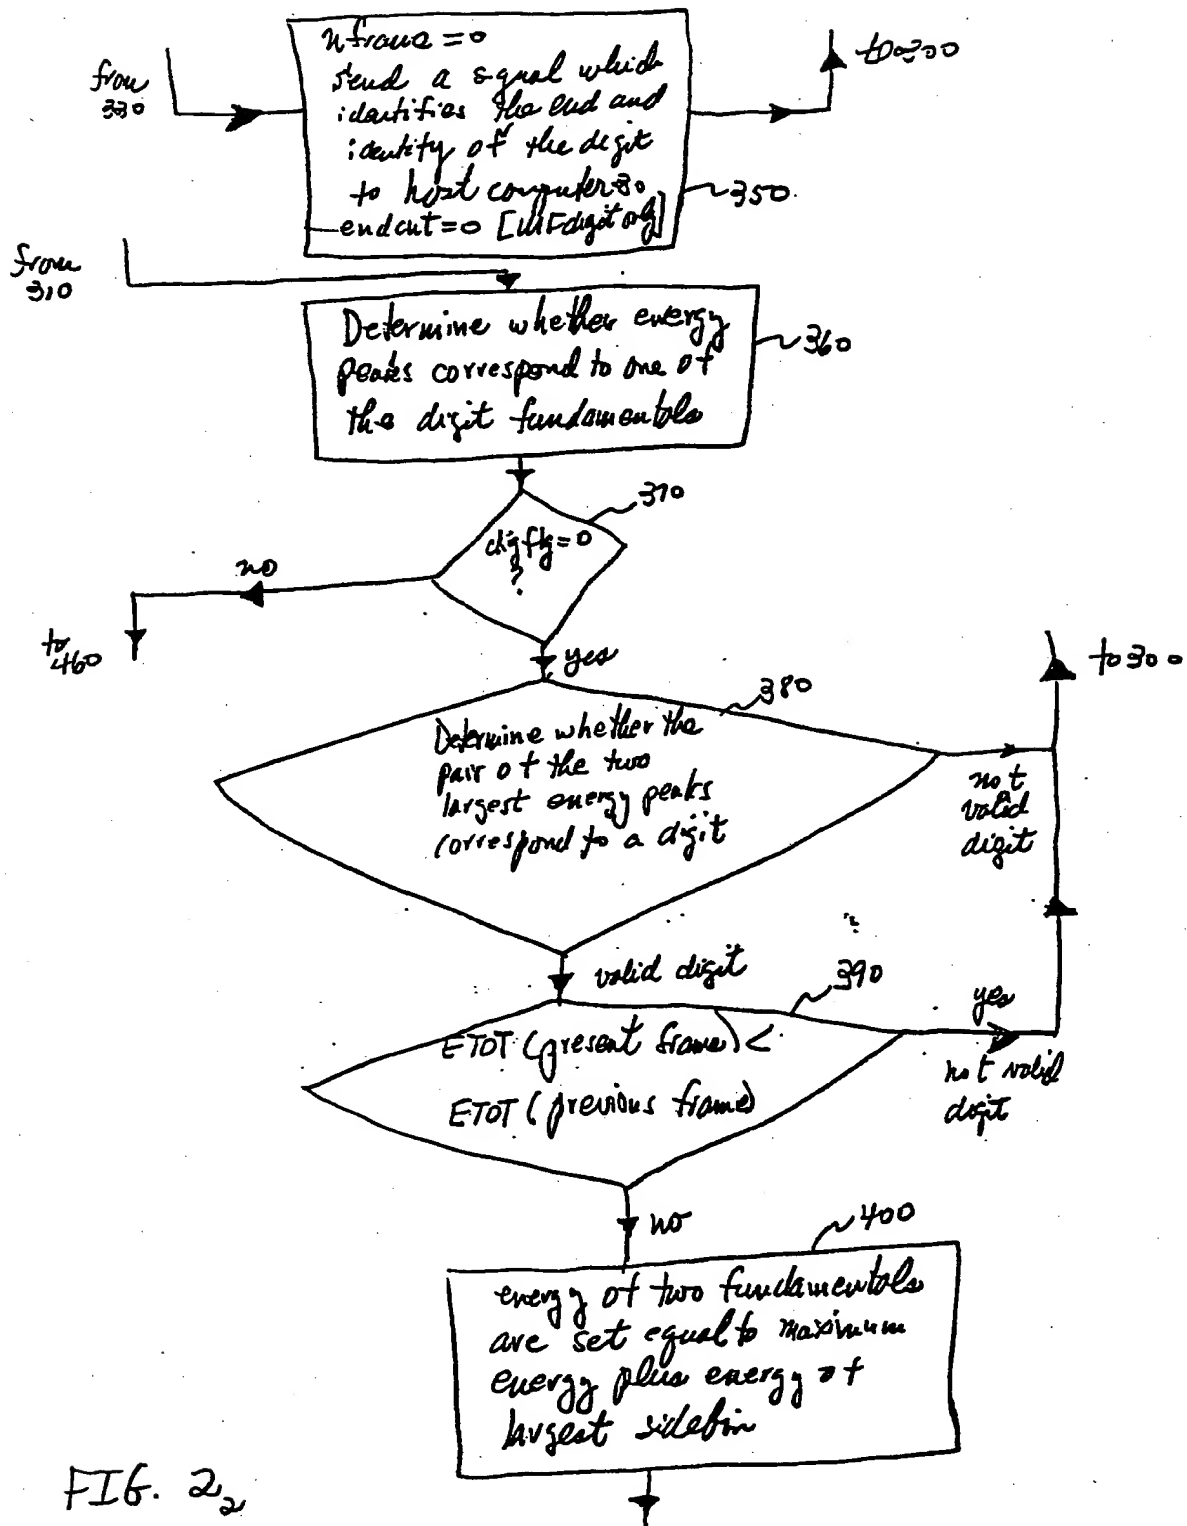 nframe = 0
send a signal which
identifies the end and
identity of the digit
to host computer 80
endcnt = 0 [MF digit only]
from
330
to 300
350
from
310
Determine whether energy
peaks correspond to one of
the digit fundamentals
360
digflg = 0
?
370
no
to
460
yes
380
to 300
Determine whether the
pair of the two
largest energy peaks
correspond to a digit
not
valid
digit
valid digit
390
yes
ETOT (present frame) <
ETOT (previous frame)
not valid
digit
no
400
energy of two fundamentals
are set equal to maximum
energy plus energy of
largest sidebin
FIG. 2₂